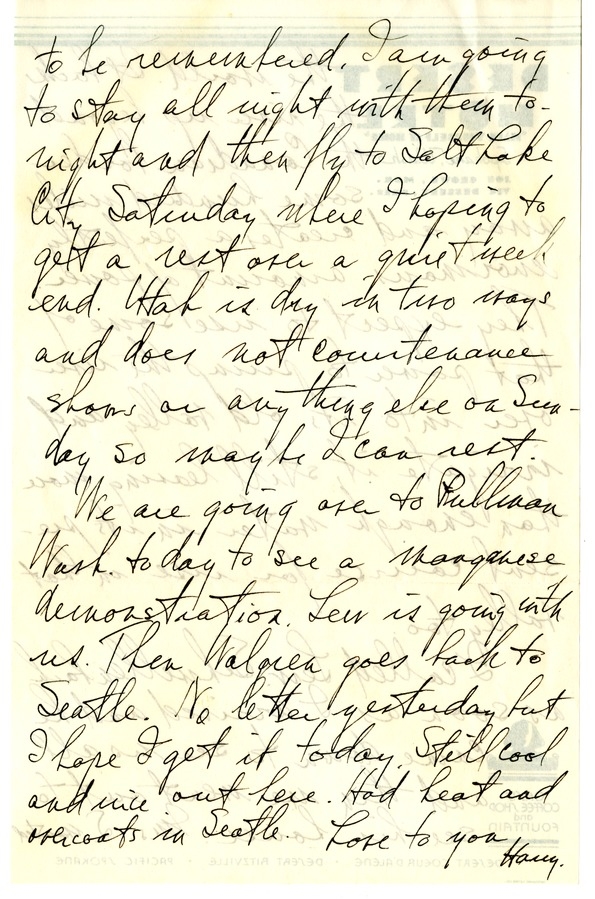 to be remembered. I am going
to stay all night with them to-
night and then fly to Salt Lake
City Saturday where I hoping to
get a rest over a quiet week
end. Utah is dry in two ways
and does not countenance
shows or anything else on Sun-
day so maybe I can rest.
We are going over to Pullman
Wash. today to see a manganese
demonstration. Lew is going with
us. Then Walgren goes back to
Seattle. No letter yesterday but
I hope I get it today. Still cool
and nice out here. Had heat and
overcoats in Seatle. Love to you
Harry.